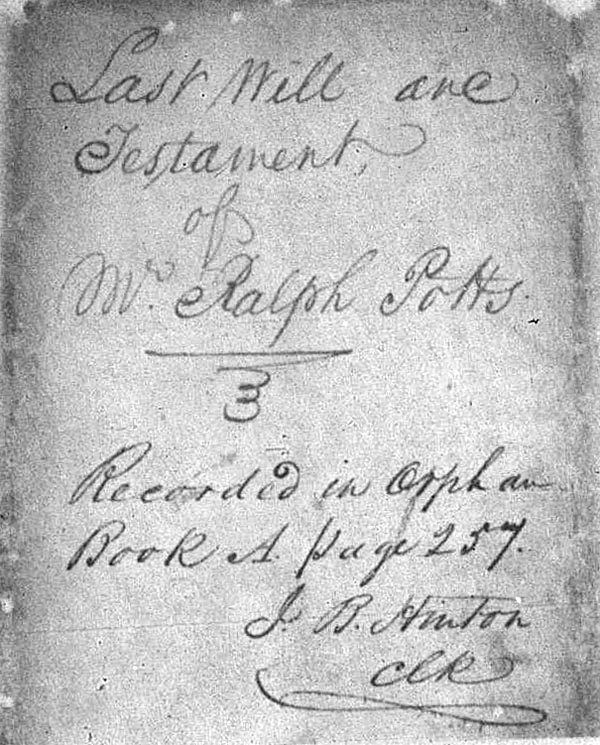 Last Will and
Testament,
of
Mr. Ralph Potts.
3
Recorded in Orphan
Book A. page 257.
J. B. Hinton
Clk